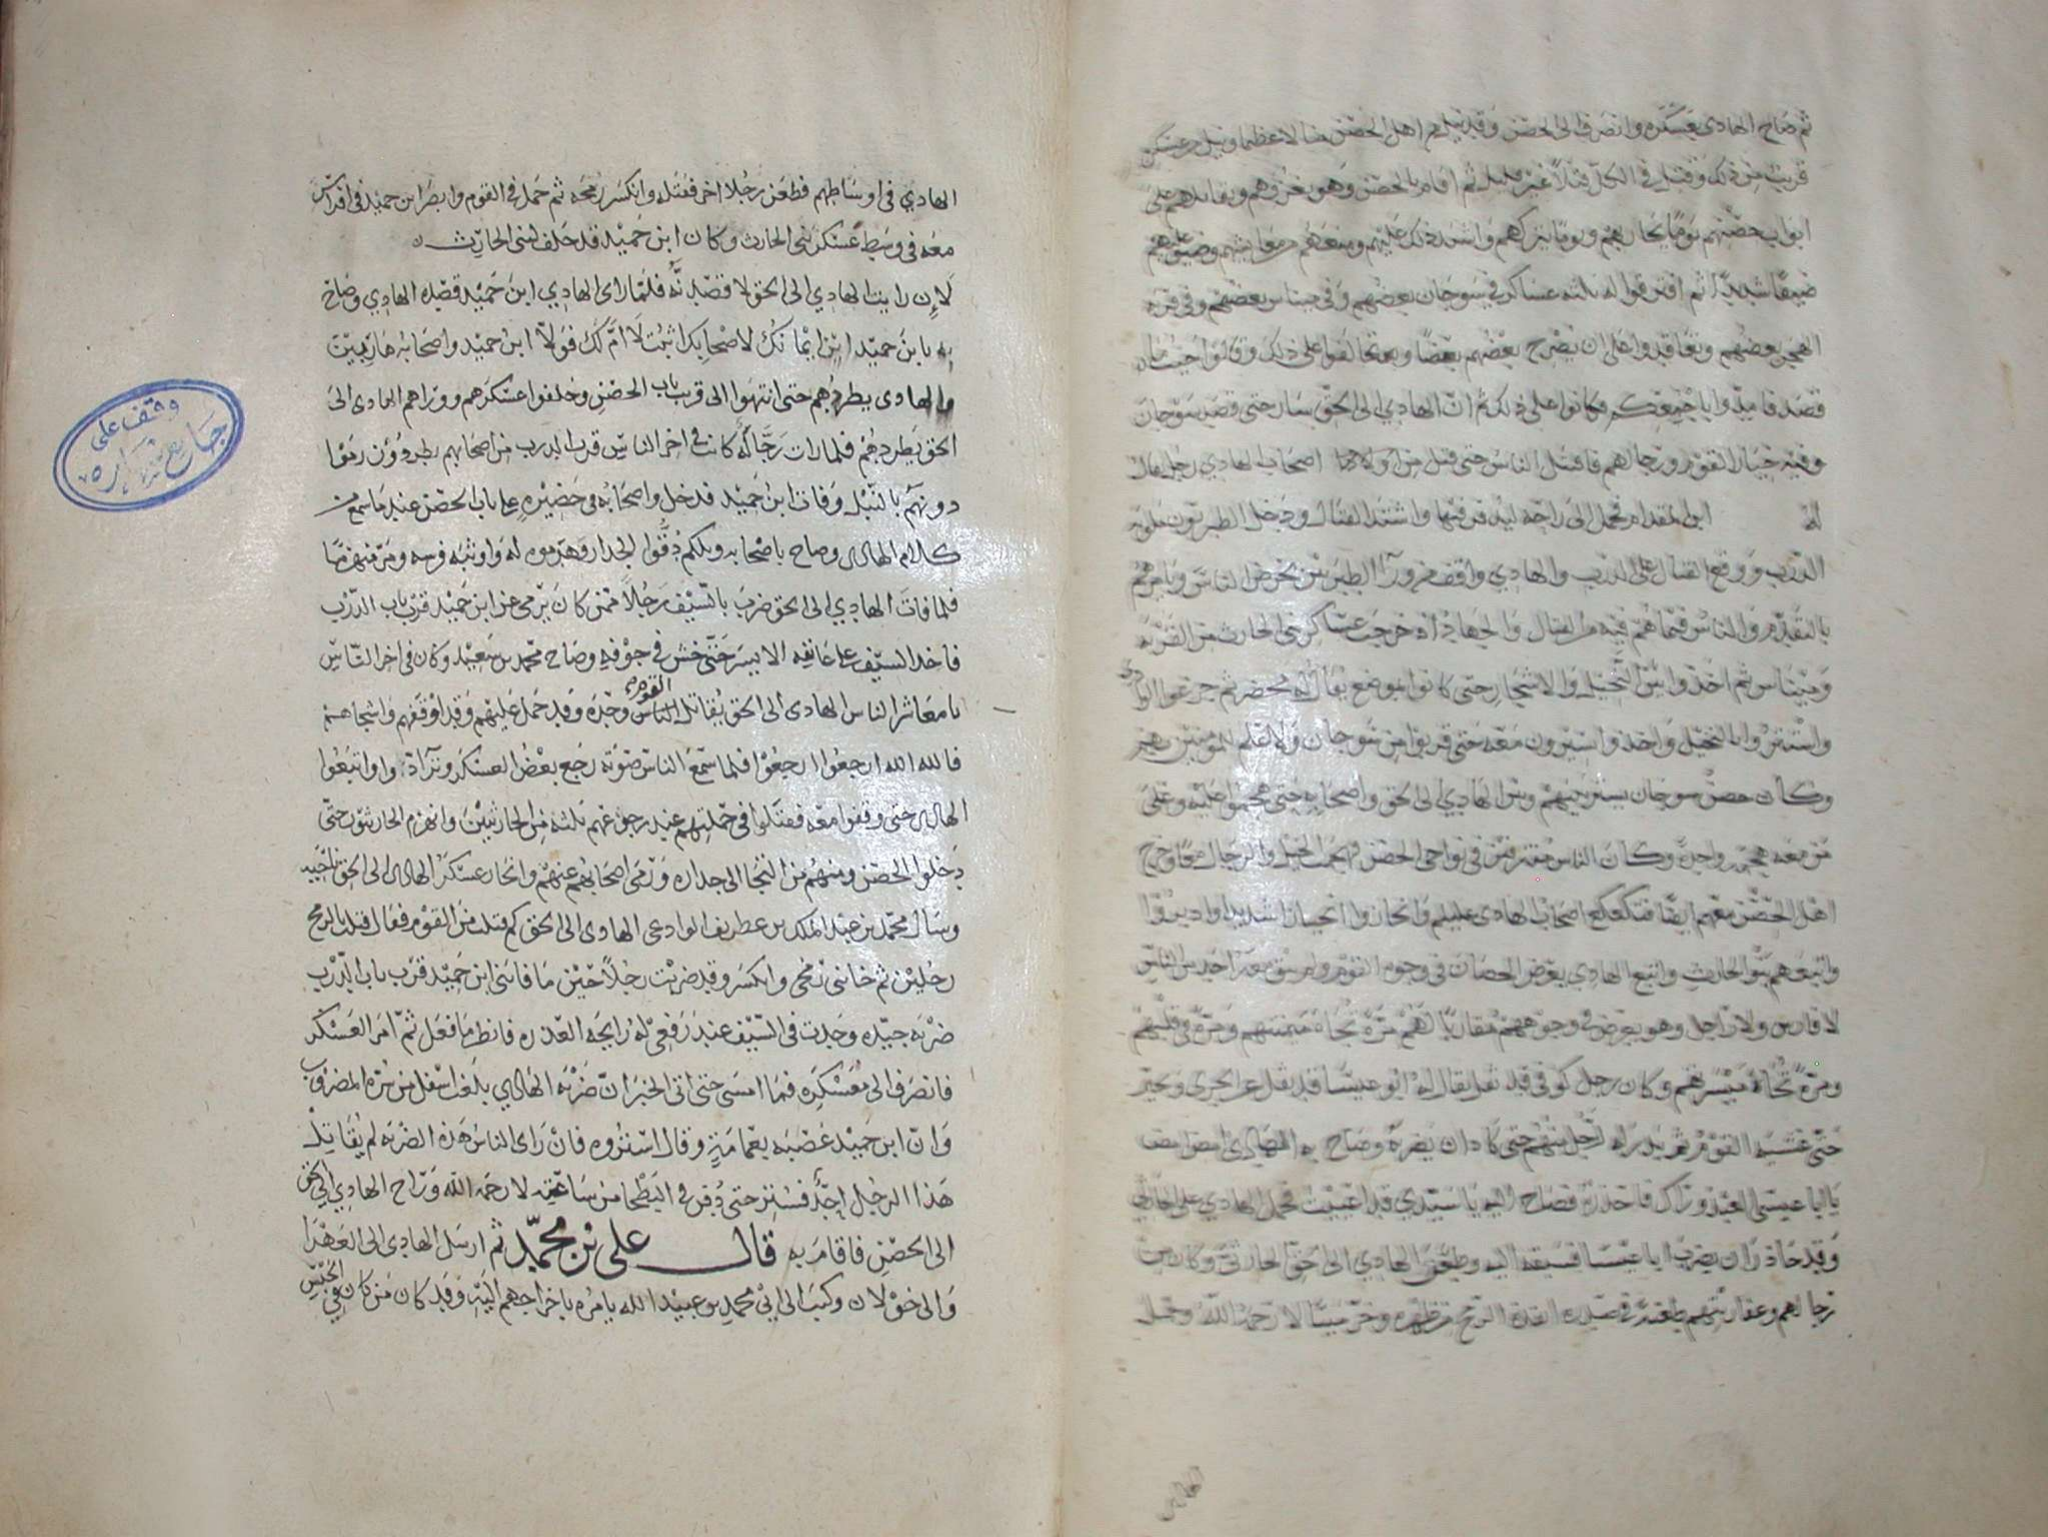 ثم صاح الهادي بعسكره وانصرف الى الحصن وقد نيل من اهل الحصن منالا عظيما ونيل من عسكره
قريب من ذلك وقتل في الكل قتلا غير قليل ثم اقام بالحصن وهو يغزوهم ويقاتلهم على
ابواب حصنهم يوما يحاربهم ويوما يتركهم واشتد ذلك عليهم ومنعهم من معايشهم وضيق عليهم
ضيقا شديدا ثم افترقوا له ثلثه عساكر في سوحان بعضهم وفي ميناس بعضهم وفي قريه
الهجر بعضهم وتعاقدوا على ان يصرخ بعضهم بعضا وتحالفوا على ذلك وقالوا حيث ما
قصد فاميدوا باجمعكم فكانوا على ذلك ثم ان الهادي الى الحق سار حتى قصد سوحان
وفيه خيار القوم ورجالهم فاقتتل الناس حتى قتل من اصحاب الهادي رجل يقال
له ابو المقدام فحمل الى راحة ليدفن فيها واشتد القتال ودخل الطبريون
الدرب ووقع القتال على الدرب والهادي واقف من ورآ الطبريين يحرض الناس ويامرهم
بالتقدم والناس فيما هم فيه من القتال والجهاد اذ خرجت عساكر بني الحارث من القريه
وميناس ثم اخذوا بين النخيل والاشجار حتى كانوا بموضع يقال له محضر ثم جزعوا الوادي
واستتروا بالنخيل واخذوا يسترون معه حتى قربوا من سوحان ولا علم للمومنين بهم
وكان حصن سوحان يستر بينهم وبين الهادي الى الحق واصحابه حتى هجموا عليه وعلى
من معه هجمه واحدة وكان الناس مفترقين في نواحي الحصن فهجمت الخيل والرجال معا وخرج
اهل الحصن معهم ايضا فتكعكع اصحاب الهادي عليلم وانحازوا انحيازا شديدا وادبروا
واتبعهم بنو الحارث واتبع الهادي يعرض الحصان في وجوه القوم ولم يبق معه احد من الناس
لا فارس ولا راجل وهو يعرض في وجوههم مقاربا لهم مرة تجاة ميمنتهم ومرة في قلبهم
ومرة تجاة ميسرتهم وكان رجل كوفي قد ثقل يقال له ابو عيسا قد ثقل عن الجري وتحير
حتى غشيه القوم ثم بدر اه رجل منهم حتى كاد ان يضربه وصاح به الهادي امض امض
يا ابا عيسى العبد وراك فاحذره فصاح اليه يا سيدي قد اعييت فحمل الهادي على الحارثي
وقد حاذر ان يضرب ابا عيسا فسبقه اليه وطعن الهادي الى الحق الحارثي وكان من
رجالهم وعفاريتهم طعنة في صدره انفذ الرمح من ظهره وخر ميتا لا رحمه الله وحمل
الهادي
الهادي في اوساطهم فطعن رجلا اخر فقتله وانكسر رمحه ثم حمل في القوم وابصر ابن حميد في افراس
معه في وسط عسكر بني الحارث وكان ابن حميد قد حلف لبني الحارث
لان رايت الهادي الى الحق لا قصدنه فلما راى الهادي ابن حميد قصده الهادي وصاح
به يا بن حميد اين ايمانك لاصحابك اثبت لا ام لك فولا ابن حميد واصحابه هاربين
والهادي يطردهم حتى انتهوا الى قرب باب الحصن وخلفوا عسكرهم ووراهم الهادي الى
الحق يطردهم فلما رات رجاله كانت في اخر الناس قرب الدرب من اصحابهم يطردون رموا
دونهم بالنبل وفات ابن حميد فدخل واصحابه في حضيره على باب الحصن عند ما سمع من
كلام الهادي وصاح باصحابه ويلكم دقوا الجدار وهدموه له واوثبه فرسه ومر منهزما
فلما فات الهادي الى الحق ضرب بالسيف رجلا ممن كان يرمي عن ابن حميد قرب باب الدرب
فاخذ السيف على عاتقه الايسر حتى خش في جوفه وصاح محمد بن سعيد وكان في اخر الناس
يا معاشر الناس الهادي الى الحق يقاتل الناس القوم وحده وقد حمل عليهم وقد اوقفهم واشجاهم
فالله الله ارجعوا ارجعوا فلما سمع الناس صوته رجع بعض العسكر وترادوا واتبعوا
الهادي حتى وقفوا معه فقتلوا في حملتهم عند رجوعهم ثلثه من الحارثيين وانهزم الحارثيون حتى
دخلوا الحصن ومنهم من التجا الى جداره ورمى اصحابهم عنهم وانحاز عسكر الهادي الى الحق ناحيه
وسال محمد بن عبد الملك بن عطريف الوادعي الهادي الى الحق كم قتلت من القوم فقال قتلت بالرمح
رجلين ثم خانني رمحي وانكسر وقد ضربت رجلا حين ما فاتني ابن حميد قرب باب الدرب
ضربه جيده وجدت في السيف عند رفعي له رايحه العذره فانظر ما فعل ثم امر العسكر
فانصرف الى معسكره فما امسى حتى اتى الخبر ان ضربه الهادي بلغت اسفل من سره المضروب
وان ابن حميد عصبه بعمامته وقال استروه فان راى الناس هذه الضربه لم يقاتل
هذا الرجل احد فستر حتى دفن في البطحا من ساعته لا رحمه الله وراح الهادي الى الحق
الى الحصن فاقام به قال علي بن محمد ثم ارسل الهادي الى العهدا
والى خولان وكتب الى ابي محمد بن عبيد الله يامره باخراجهم اليه وقد كان من كان في الحبس
وقف على
جامع شهاره